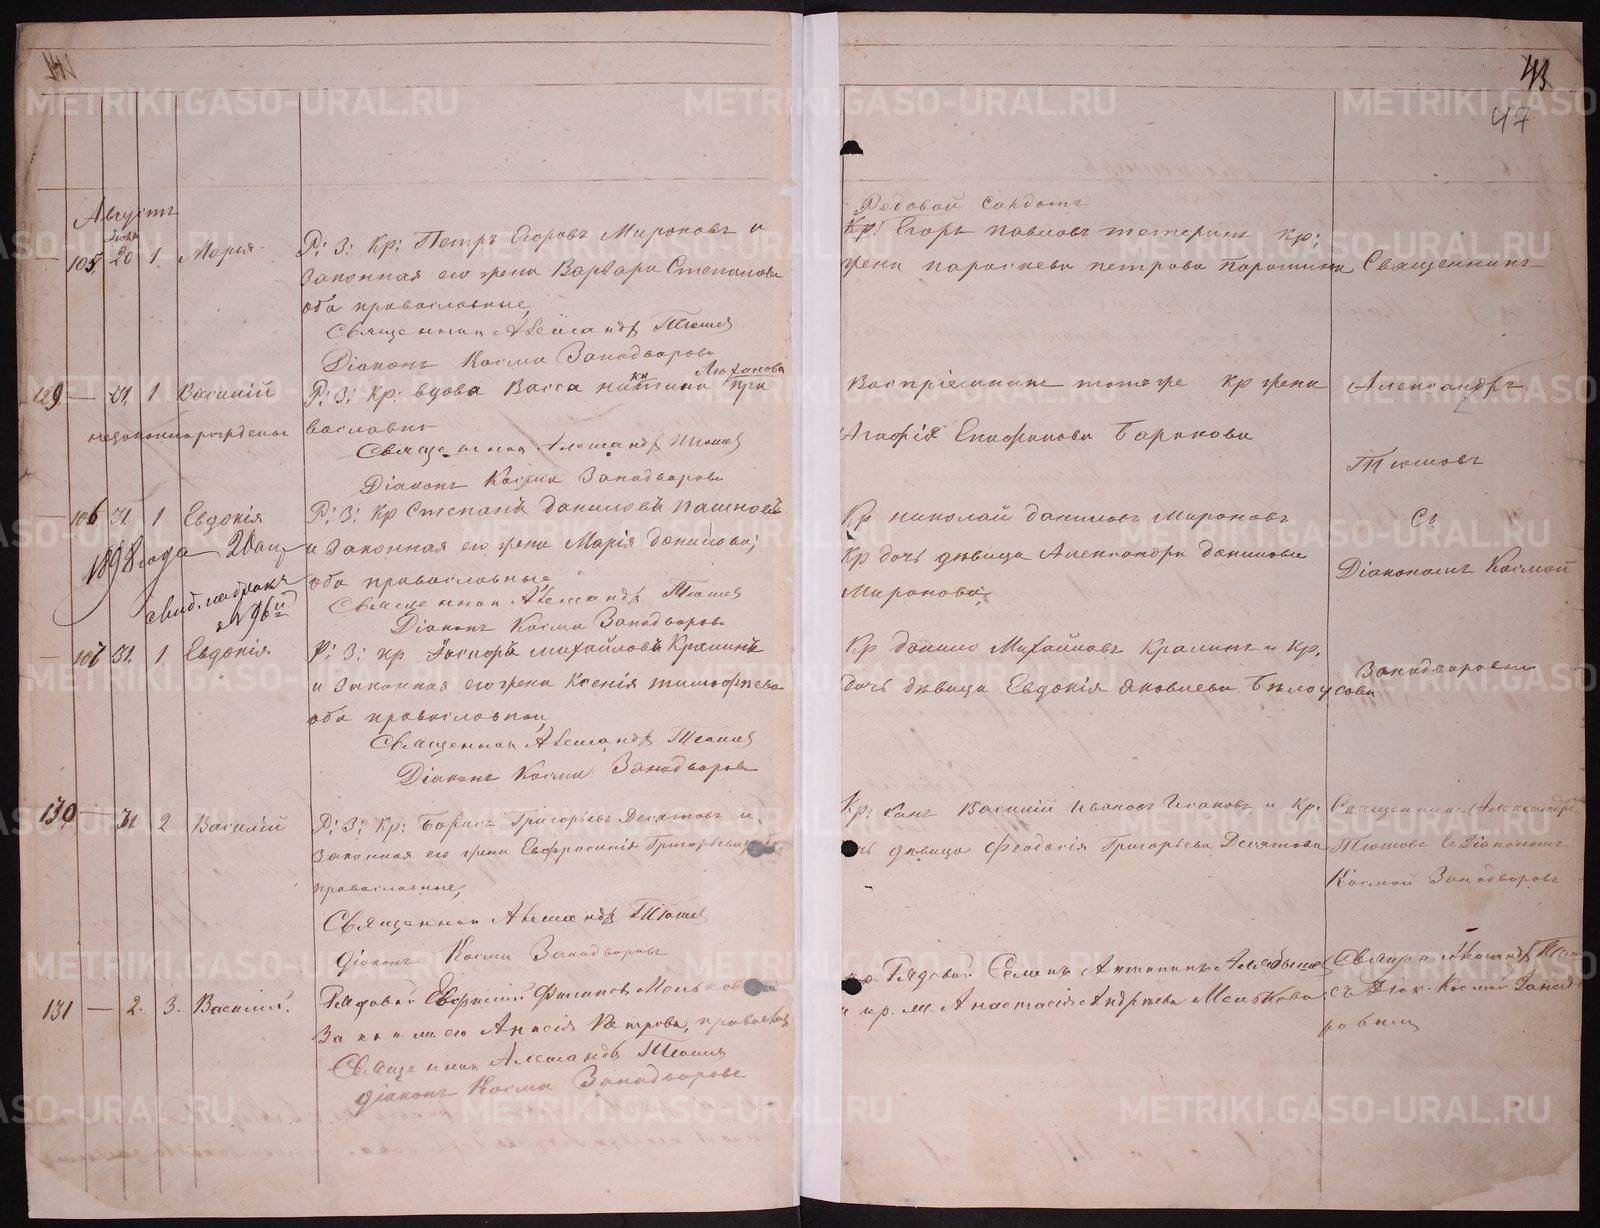 43
47
Августъ
Іюля
105. 20 1. Марія
Р: З: Кр: Петръ Егоровъ Мироновъ и
законная его жена Варвара Степанова
оба православные,
Священникъ Александръ Тюшевъ
Діаконъ Косма Западворовъ
Редовой Солдатъ
Кр: Егоръ Павловъ Тетеринъ Кр:
жена Параскева Петрова Паромина
Священникъ
129 — 31. 1 Василій
незаконнорожденъ
Р: З: Кр: вдова Васса православно
Священникъ Александръ Тюшевъ
Діаконъ Косма Западворовъ
Воспріемники тотъ же Кр жена
Агафія Епифанова Баранова
Александръ
Тюшовъ
— 106 31. 1 Евдокія
1898 года 20
Р: З: Кр Степанъ Даниловъ Пашновъ
и законная его жена Марія Данилова;
оба православные
Священникъ Александръ Тюшевъ
Діаконъ Косма Западворовъ
Кр Николай Даниловъ Мироновъ
Кр дочь девица Александра Данилова
Миронова,
Съ
Діакономъ Космой
Западворовым
— 107 31. 1. Евдокія
Р: З: кр Михайловъ Кралинъ
и законная его жена Ксенія Тимофеева
оба православныи,
Священникъ Александръ Тюшевъ
Діаконъ Косма Западворовъ
Кр Данило Михайловъ Кралинъ и Кр,
дочь девица Евдокія Яковлева Белоусова
130 — 31 2 Василій
Р: З: Кр: Борисъ Григорьевъ Десятовъ и
законная его жена Евфросинія Григорьева,
православные,
Священникъ Александръ Тюшевъ
діаконъ Косма Западворовъ
Кр: сынъ Василій Ивановъ Исаковъ и Кр.
девица Феодосія Григорьева Десятова
Священникъ Александръ
Тюшовъ съ Діакономъ
Космой Западворовъ
131 — 2. 3. Василій.
Рядовой Евфимій Филиповъ Мельковъ
Зак его Петрова, правосл
Священникъ Александръ Тюшевъ
діаконъ Косма Западворовъ
Рядовой Семенъ Антипинъ
и кр. Анастасія Андреева Мелькова.
Священ Александръ
съ Діак. Космой Западво
ровым